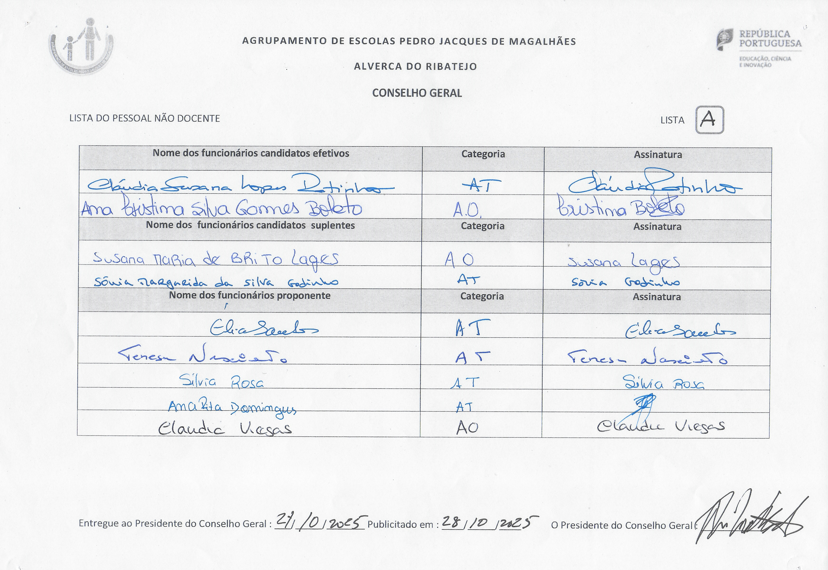 AGRUPAMENTO DE ESCOLAS PEDRO JACQUES DE MAGALHÃES
REPÚBLICA
PORTUGUESA
EDUCAÇÃO, CIÊNCIA
E INOVAÇÃO
ALVERCA DO RIBATEJO
CONSELHO GERAL
LISTA DO PESSOAL NÃO DOCENTE LISTA A
Nome dos funcionários candidatos efetivos Categoria Assinatura
Cláudia Susana Lopes Ratinho AT Cláudia Ratinho
Ana Cristina Silva Gomes Boleto A.O. Cristina Boleto
Nome dos funcionários candidatos suplentes Categoria Assinatura
Susana Maria de BRITO Lages AO Susana Lages
Sónia Margarida da Silva Godinho AT Sónia Godinho
Nome dos funcionários proponente Categoria Assinatura
Elia Santos AT Elia Santos
Teresa Nascimento AT Teresa Nascimento
Silvia Rosa AT Silvia Rosa
Ana Rita Domingues AT
Claudia Viegas AO Claudia Viegas
Entregue ao Presidente do Conselho Geral : 27/10/2025 Publicitado em : 28/10/2025 O Presidente do Conselho Geral: